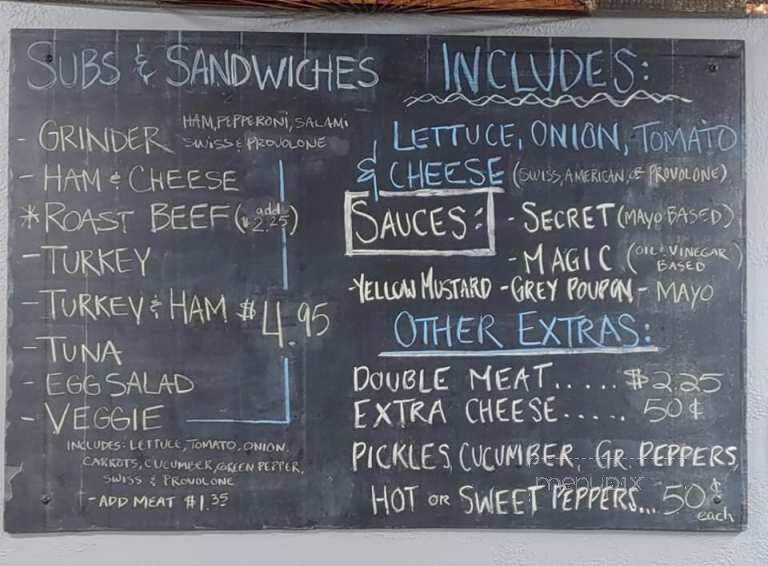 SUBS & SANDWICHES
- GRINDER HAM, PEPPERONI, SALAMI
SWISS & PROVOLONE
- HAM & CHEESE
*ROAST BEEF (add $2.25)
- TURKEY
- TURKEY & HAM $4.95
- TUNA
- EGG SALAD
- VEGGIE
INCLUDES: LETTUCE, TOMATO, ONION,
CARROTS, CUCUMBER, GREEN PEPPER,
SWISS & PROVOLONE
- ADD MEAT $1.35
INCLUDES:
LETTUCE, ONION, TOMATO
& CHEESE (SWISS, AMERICAN, or PROVOLONE)
SAUCES: - SECRET (MAYO BASED)
- MAGIC (OIL & VINEGAR
BASED)
- YELLOW MUSTARD - GREY POUPON - MAYO
OTHER EXTRAS:
DOUBLE MEAT..... $2.25
EXTRA CHEESE..... 50¢
PICKLES, CUCUMBER, GR. PEPPERS
HOT OR SWEET PEPPERS... 50¢
each
menupix